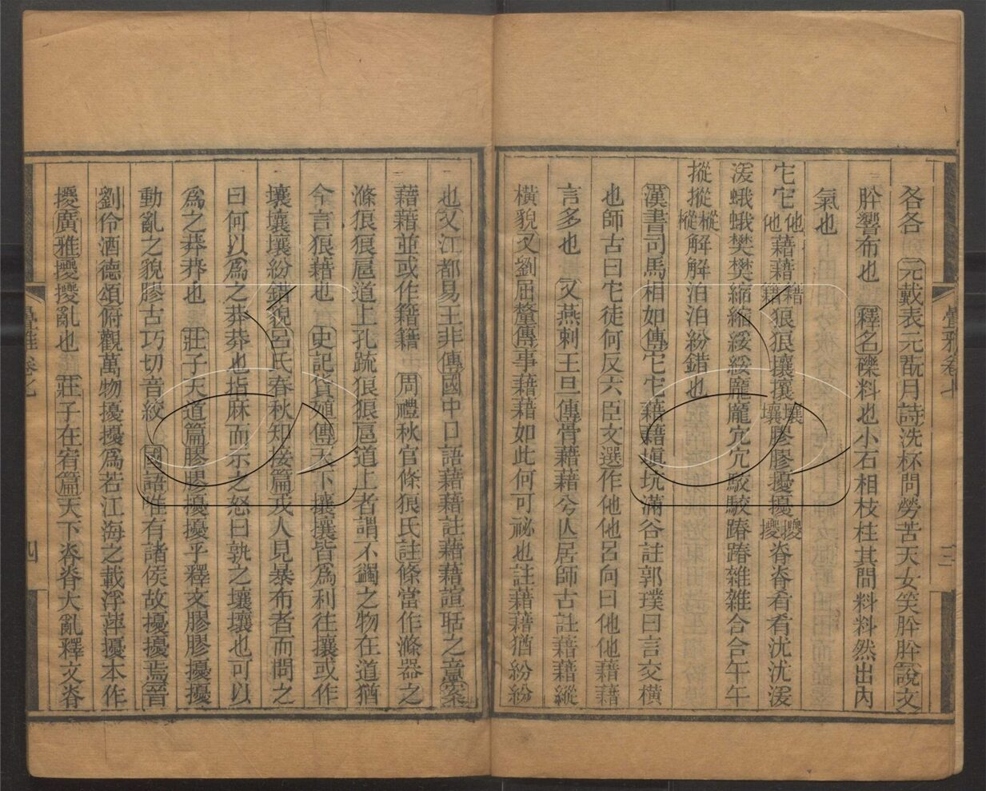 各各 元戴表元翫月詩洗杯問勞苦天女笑肸肸說文
肸響布也 釋名礫料也小石相枝柱其間料料然出內
氣也
它它他他藉藉籍籍狼狼壤壤壤膠膠擾擾㹛脊脊肴肴沋沋湲
湲蛾蛾樊樊縮縮綏綏龐龐宂宂駮駮蹖蹖雜雜合合午午
摐摐樅樅解解泊泊紛錯也
漢書司馬相如傳它它藉藉塡坑滿谷註郭璞曰言交橫
也師古曰它徒何反六臣文選作他他呂向曰他他藉藉
言多也 又燕剌王旦傳骨藉藉兮亾居師古註藉藉縱
橫貌又劉屈氂傳事藉藉如此何可祕也註藉藉猶紛紛
也又江都易王非傳國中口語藉藉註藉藉諠聒之意案
藉藉並或作籍籍 周禮秋官條狼氏註條當作滌器之
滌狼狼扈道上孔疏狼狼扈道上者謂不蠲之物在道猶
今言狼藉也 史記貨殖傳天下壤壤皆爲利往壤或作
壤壤壤紛錯貌呂氏春秋知接篇戎人見暴布者而問之
曰何以爲之莽莽也指麻而示之怒曰孰之壤壤也可以
爲之莽莽也 莊子天道篇膠膠擾擾乎釋文膠膠擾擾
動亂之貌膠古巧切音絞 國語惟有諸侯故擾擾焉晉
劉伶酒德頌俯觀萬物擾擾爲若江海之載浮萍擾本作
擾廣雅㹛㹛亂也 莊子在宥篇天下脊脊大亂釋文脊
疊雅卷七
三
疊雅卷七
四